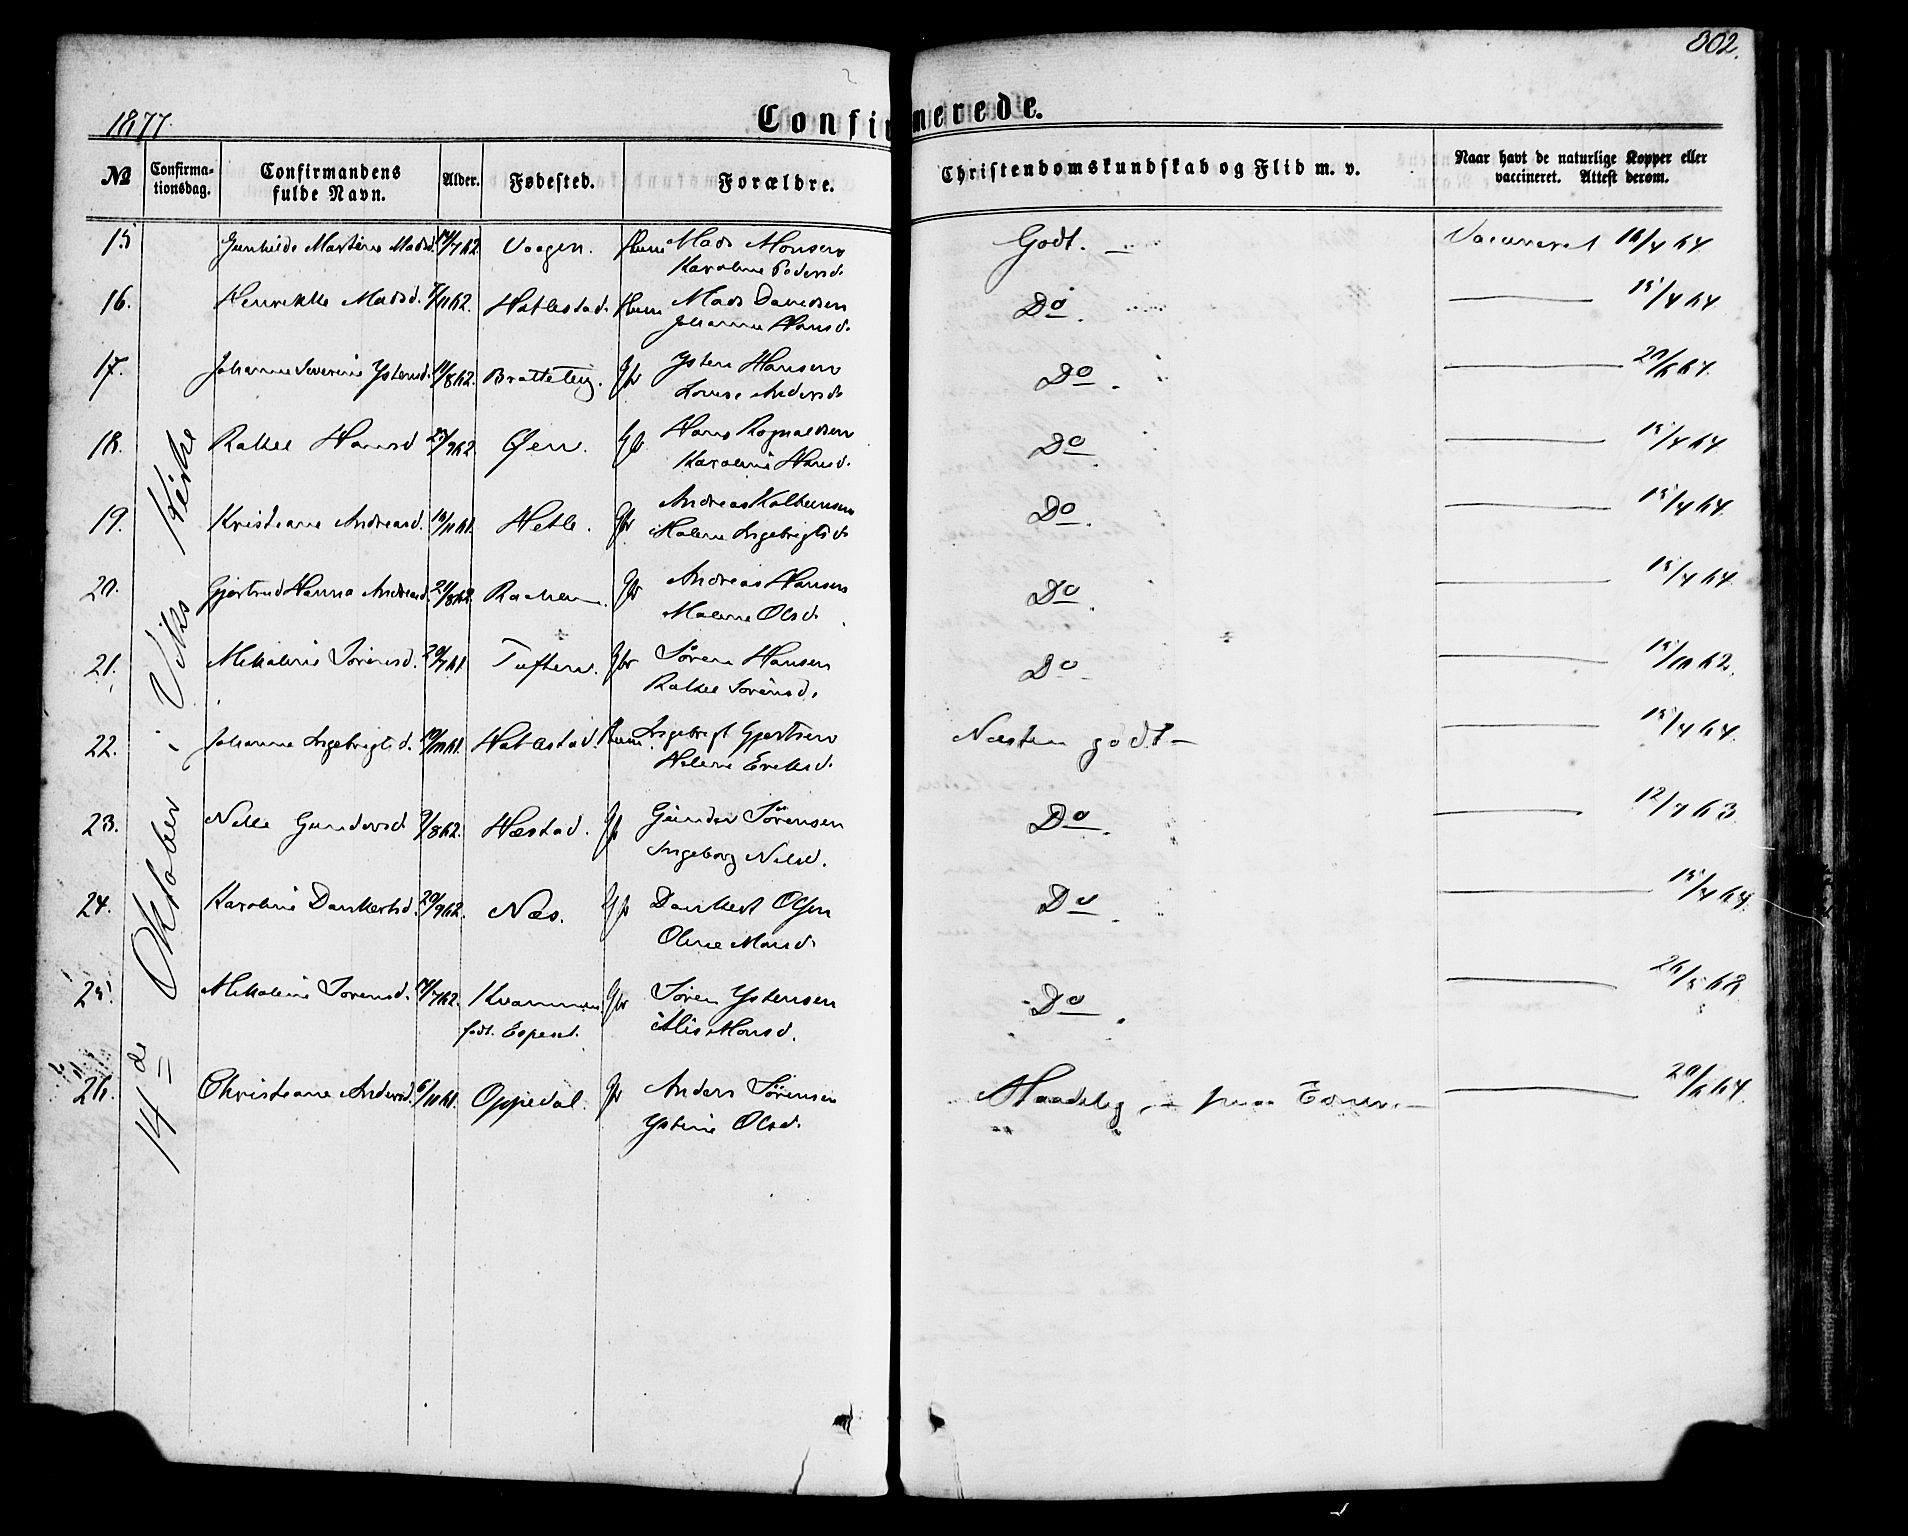 302.
1877.
Confirmerede.
№ Confirma-tionsdag. Confirmandens fulde Navn. Alder. Fødested. Forældre. Christendomskundskab og Flid m. v. Naar havt de naturlige Kopper eller vaccineret. Attest derom.
14de Oktober i Viks Kirke
15 Gunhilde Martine Madsd. 14/7 62 Vaagen. Huus Mads Monsen Godt. — Vaccineret 16/4 64
Karoline Pedersd.
16. Henrikke Madsd. 7/11 62. Hatlestad. Huus Mads Davidsen Do. — 15/4 64
Johanne Hansd.
17. Johanne Severine Ystensd. 11/8 62. Bratteteig. Gbr Ysten Hansen Do. — 20/6 64.
Lovise Andersd.
18. Rakel Hansd 25/9 62 Øen. Gb Hans Rognaldsen Do — 15/4 64
Karoline Hansd.
19. Kristiane Andreasd. 16/11 61. Hetle. Gbr. Andreas Kolbensen Do. — 15/4 64.
Malene Ingebrigtsd.
20. Gjertrud Hanna Andreasd. 21/8 62. Gbr Andreas Hansen Do. — 15/4 64.
Malene Olsd.
21. Mikaline Sørensd. 20/7 61. Tuften. Gbr Søren Hansen Do. — 15/10 62.
Rakel Sørensd.
22. Johanne Ingebrigtsd. 10/11 61. Hatlestad. Huus. Ingebrigt Gjertsen Næsten godt — 15/4 64.
Helene Eriksd.
23. Nille Gundersd. 9/8 62. Hæstad. Gb Gunder Sørensen Do. — 12/7 63
Ingeborg Nilsd.
24. Karoline Dankertsd. 20/9 62. Næs. Gb Dankert Olsen Do. — 15/4 64.
Oline Monsd.
25. Mikaline Sørensd. 14/7 62. Kvammen Gbr Søren Ystensen Do. — 26/5 63
født. Espeset. Alis Monsd.
26. Christiane Andersd. 6/11 61. Oppedal. Gbr Anders Sørensen Maadelig, — — 20/6 64.
Ystine Olsd.